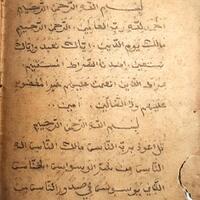 بسم الله الرحمن الرحيم
الحمد لله رب العالمين الرحمن الرحيم
مالك يوم الدين إياك نعبد وإياك
نستعين اهدنا الصراط المستقيم
صراط الذين انعمت عليهم غير المغضوب
عليهم ولا الضالين امين
بسم الله الرحمن الرحيم
قل اعوذ برب الناس مالك الناس اله
الناس من شر الوسواس الخناس
الذي يوسوس في صدور الناس من